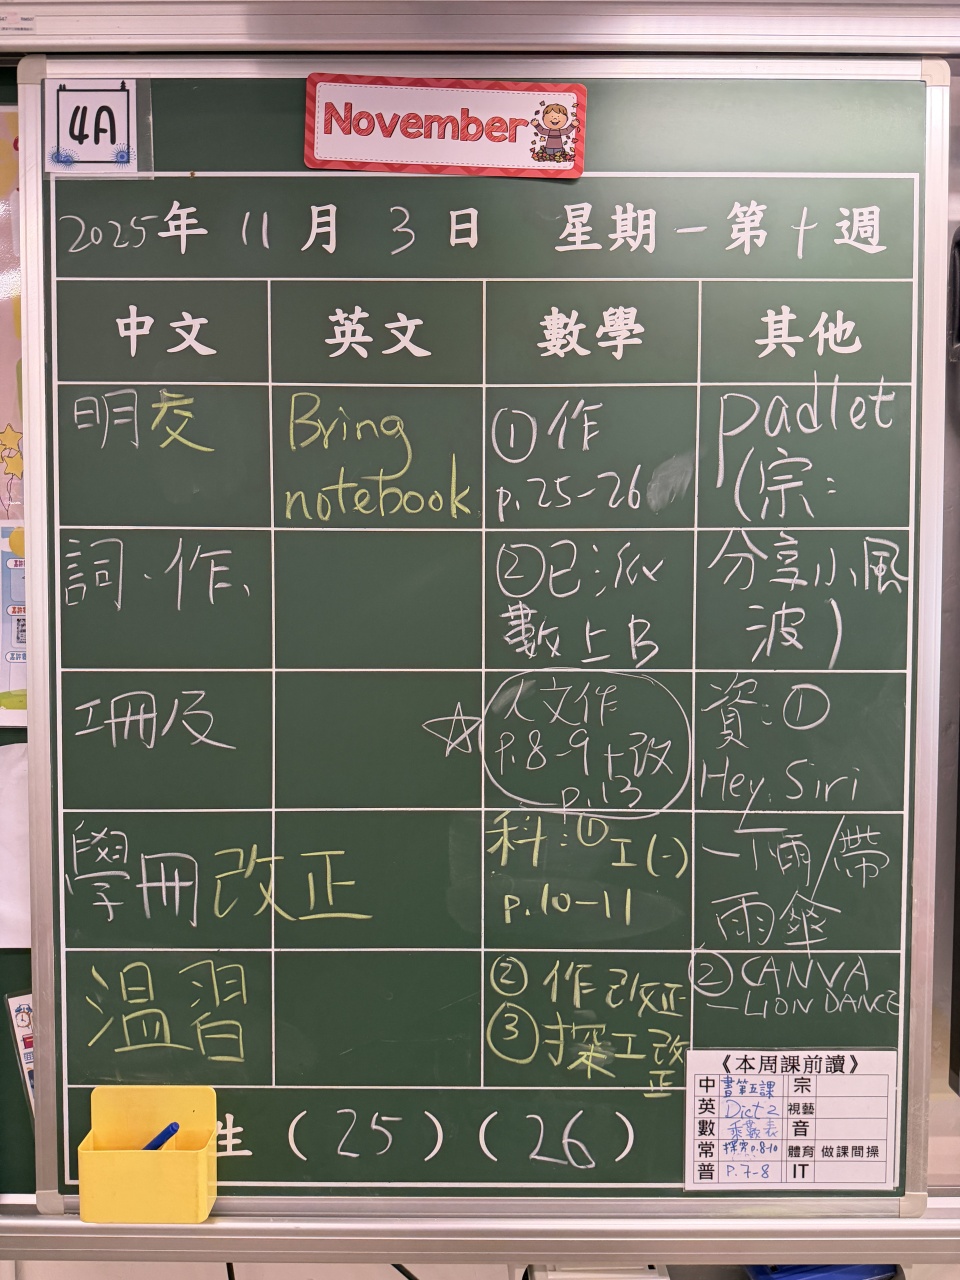 4A
November
2025年 11月 3日 星期一 第十週
中文
英文
數學
其他
明交
詞.作、
工冊及
學冊改正
溫習
Bring
notebook
①作
p.25-26
②已派
數上B
☆ 人文作
P.8-9+改
p.13
科:① 工(一)
p.10-11
② 作改正
③ 探工改
正
padlet
(宗:
分享小風
波)
資:①
Hey, Siri
一下雨/帶
雨傘
② CANVA
—LION DANCE
生(25)(26)
《本周課前讀》
中 書第五課 宗
英 Dict 2 視藝
數 乘數表 音
常 探究p.8-10 體育 做課間操
普 P.7-8 IT